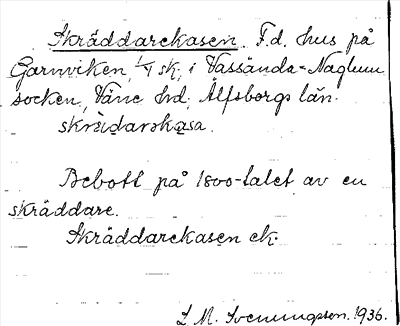 Skräddarekasen. F.d. hus på
Garnviken, 1/4 sk, i Vassända-Naglum
socken, Väne hd, Älfsborgs län.
skrädarskasa.
Bebott på 1800-talet av en
skräddare.
Skräddarekasen ek.
L. M. Svenungsson. 1936.